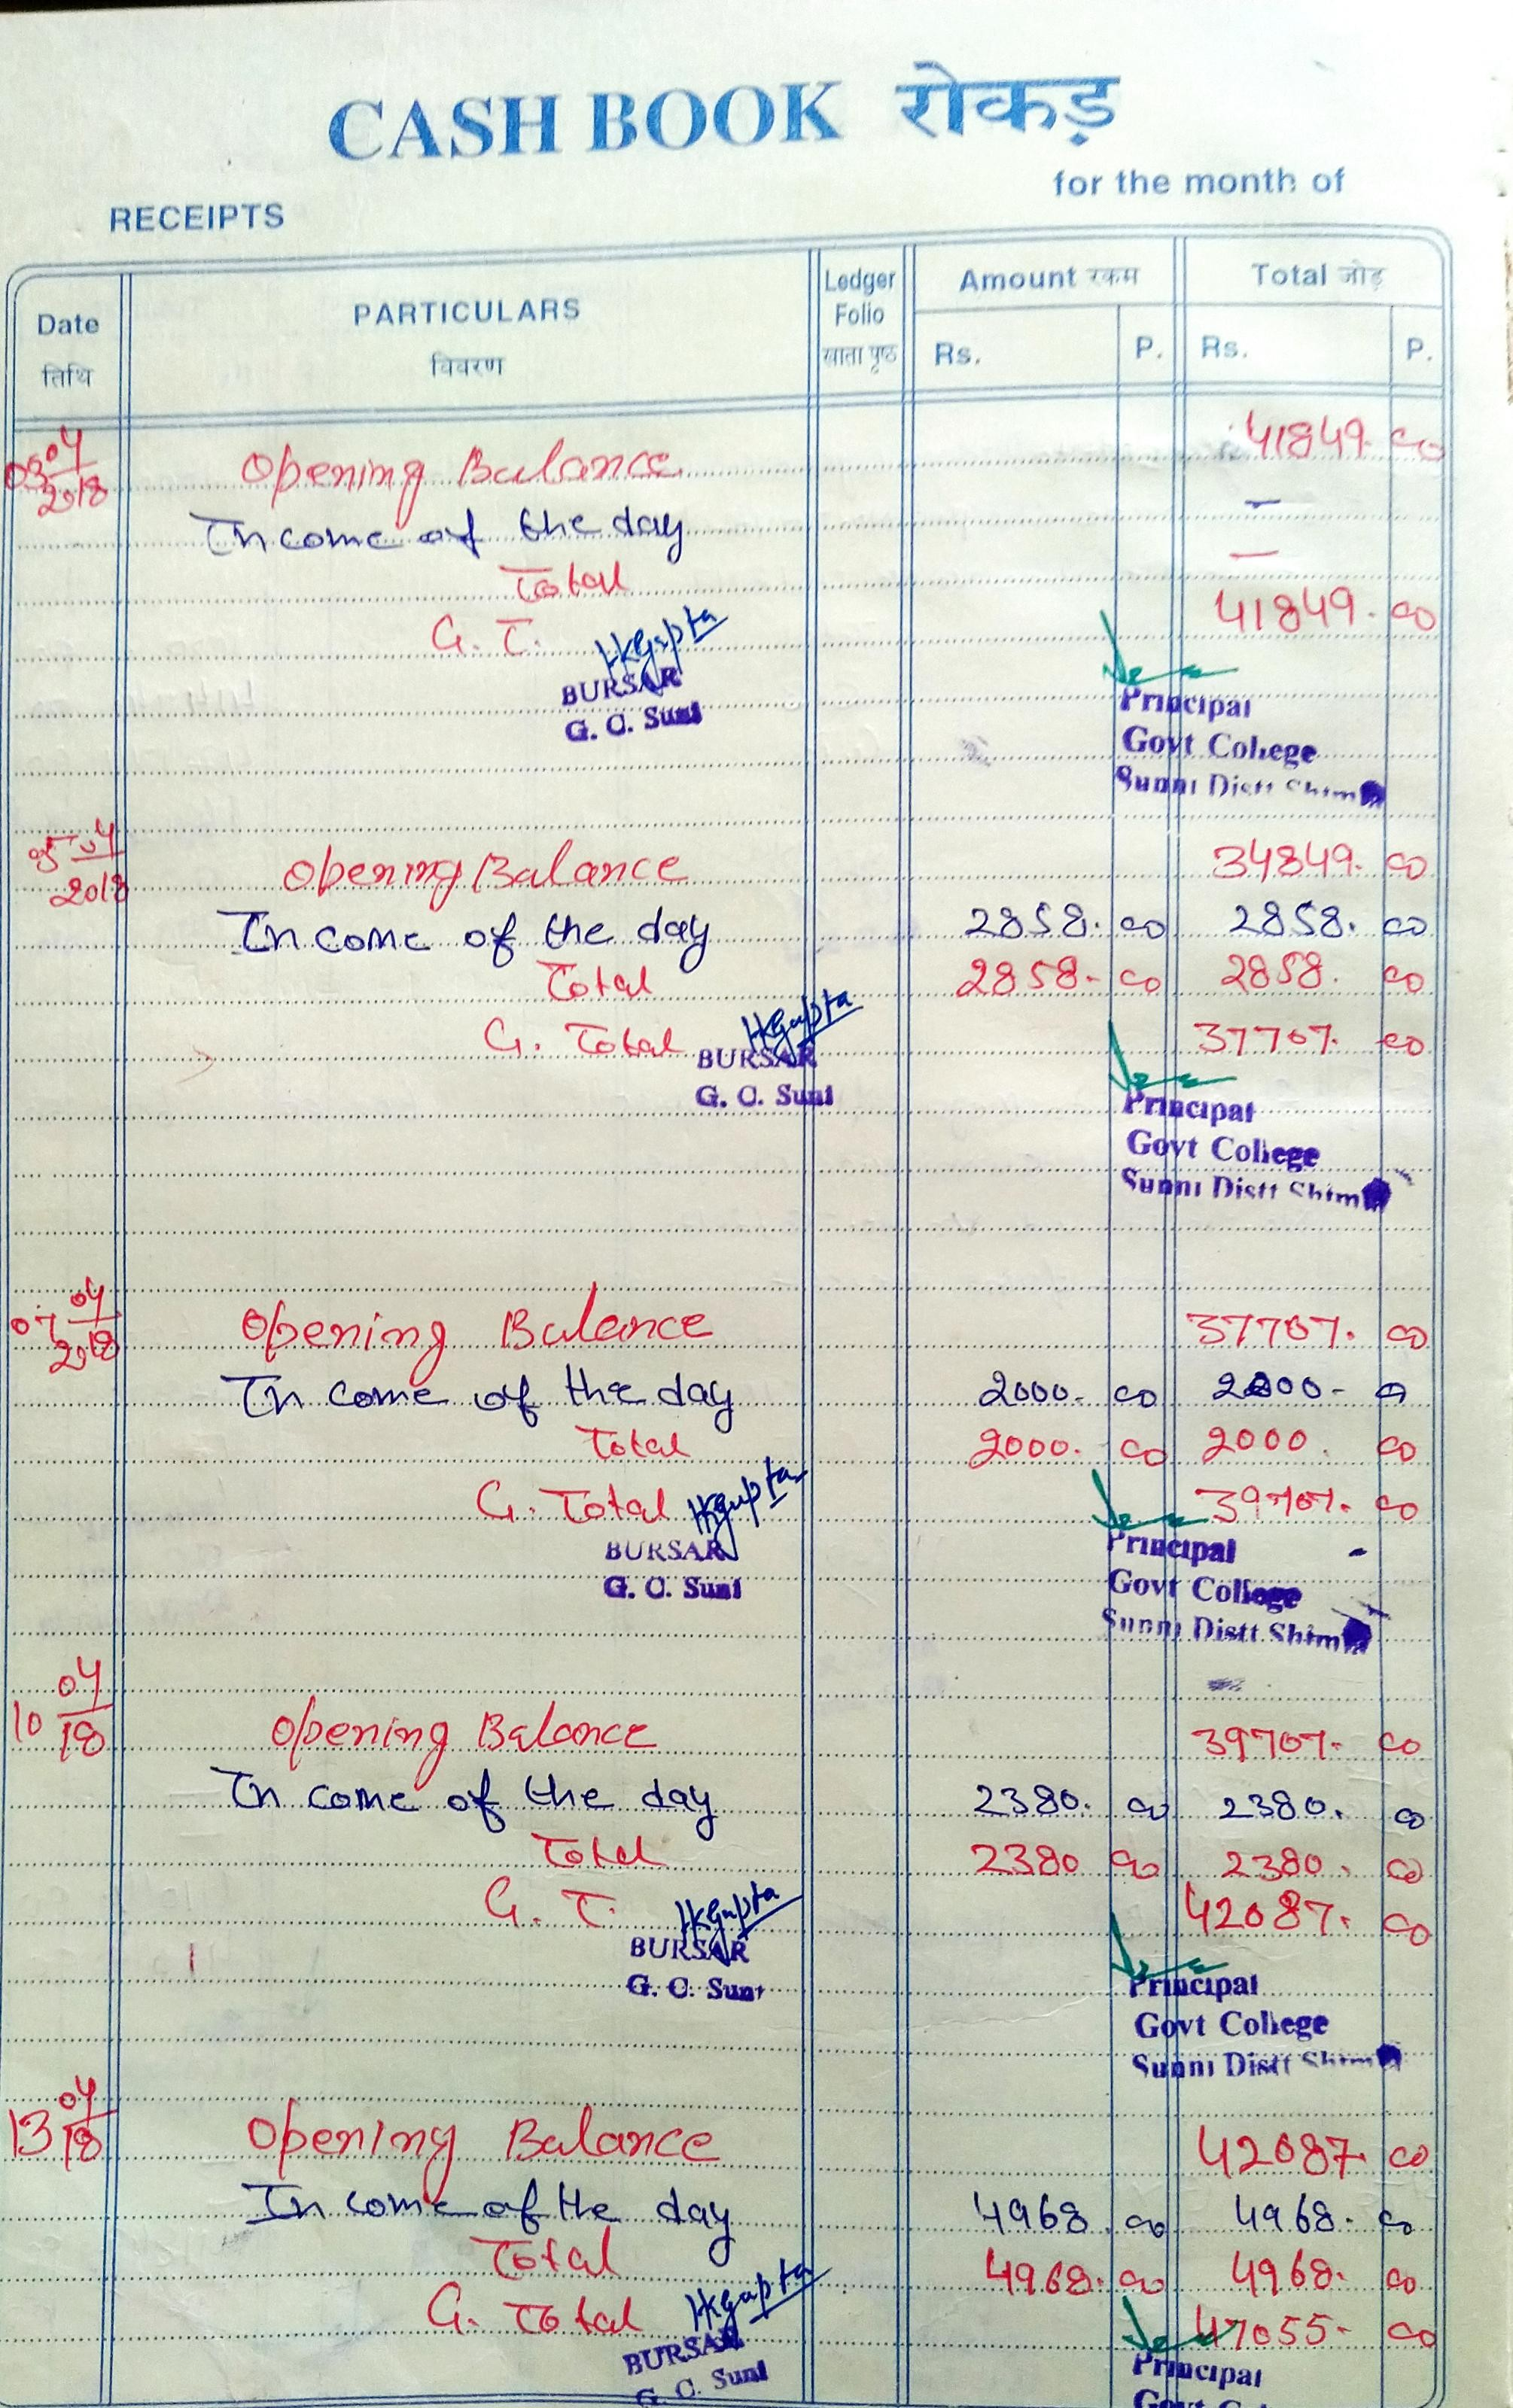 CASH BOOK रोकड़
for the month of
RECEIPTS
Date तिथि PARTICULARS विवरण Ledger Folio खाता पृष्ठ Amount रकम Rs. P. Total जोड़ Rs. P.
03 04/2018 Opening Balance 41849. 00
Income of the day –
Total –
G. T. 41849. 00
HKGupta
BURSAR
G. C. Suni
Principal
Govt College
Sunni Distt Shim
05 04/2018 Opening Balance 34849. 00
Income of the day 2858. 00 2858. 00
Total 2858- 00 2858. 00
G. Total 37707. 00
HKGupta
BURSAR
G. C. Suni
Principal
Govt College
Sunni Distt Shim
07 04/2018 Opening Balance 37707. 00
Income of the day 2000. 00 2000- 00
Total 2000. 00 2000. 00
G. Total 39707. 00
HKGupta
BURSAR
G. C. Suni
Principal
Govt College
Sunni Distt Shim
10 04/18 Opening Balance 39707. 00
Income of the day 2380. 00 2380. 00
Total 2380 00 2380. 00
G. T. 42087. 00
HKGupta
BURSAR
G. C. Suni
Principal
Govt College
Sunni Distt Shim
13 04/18 Opening Balance 42087 00
Income of the day 4968 00 4968. 00
Total 4968. 00 4968. 00
G. Total 47055- 00
HKGupta
BURSAR
G. C. Suni
Principal
Govt